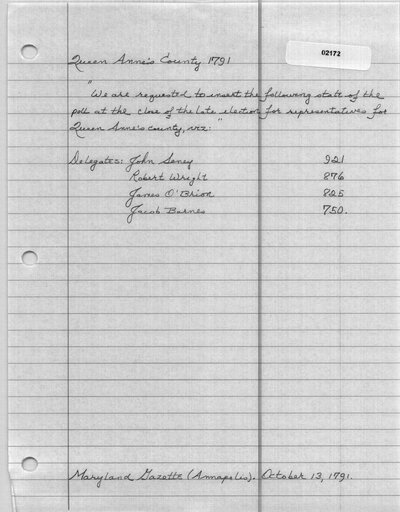 02172
Queen Anne's County 1791
"We are requested to insert the following state of the
poll at the close of the late election for representatives for
Queen Anne's county, viz: "
Delegates: John Seney 921
Robert Wright 876
James O'Brion 825
Jacob Barnes 750.
Maryland Gazette (Annapolis). October 13, 1791.